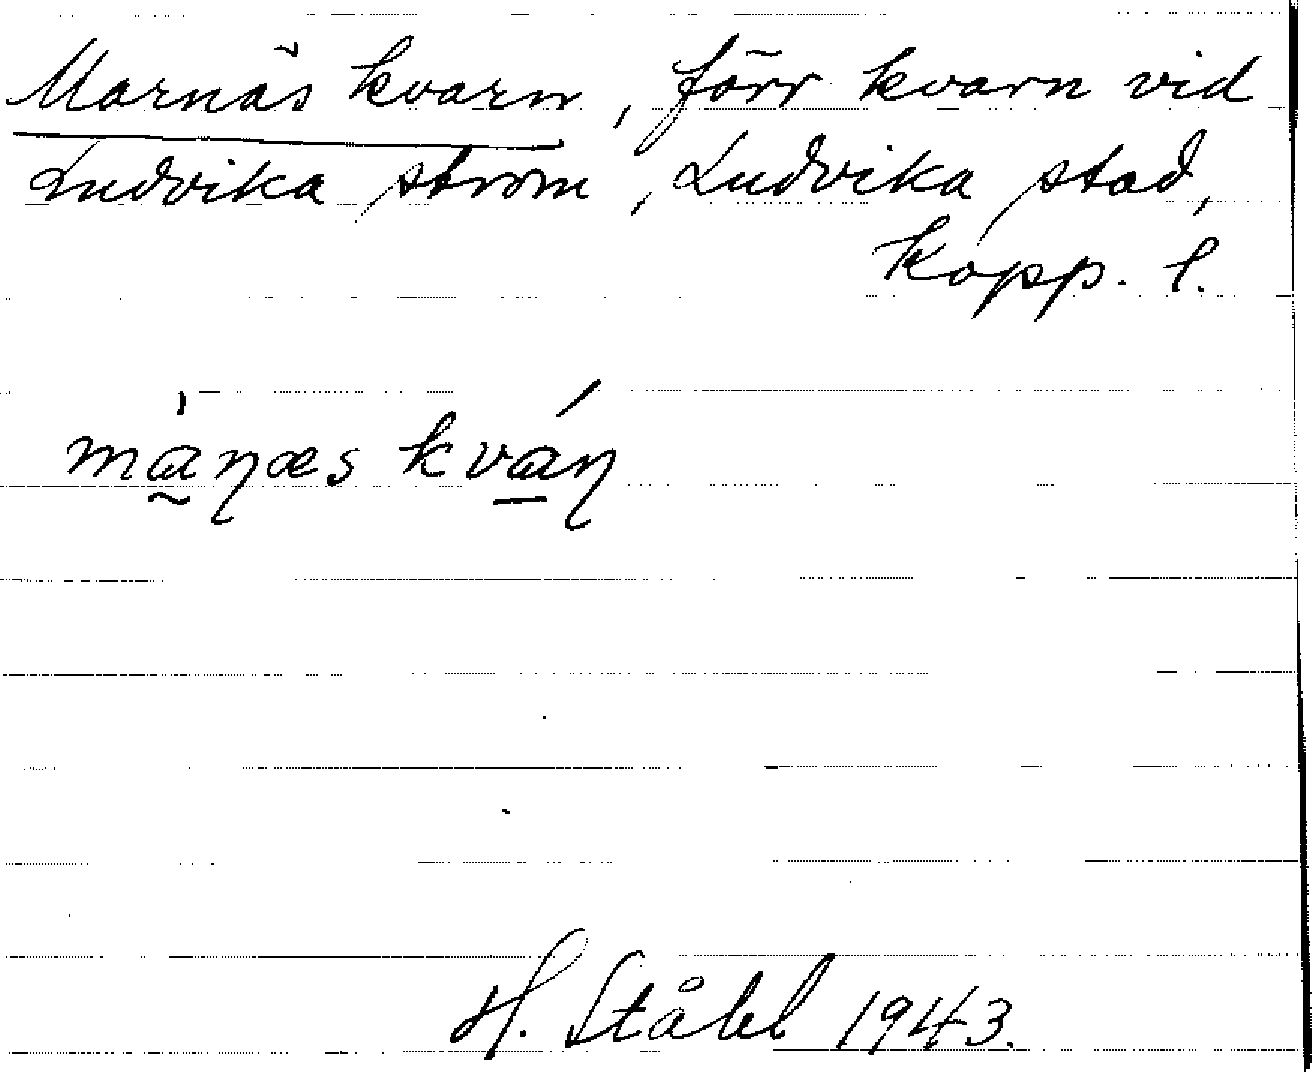 Marnäs kvarn, förr kvarn vid
Ludvika ström, Ludvika stad,
Kopp. l.
mạ̀ṇæs kváṇ
H. Ståhl 1943.